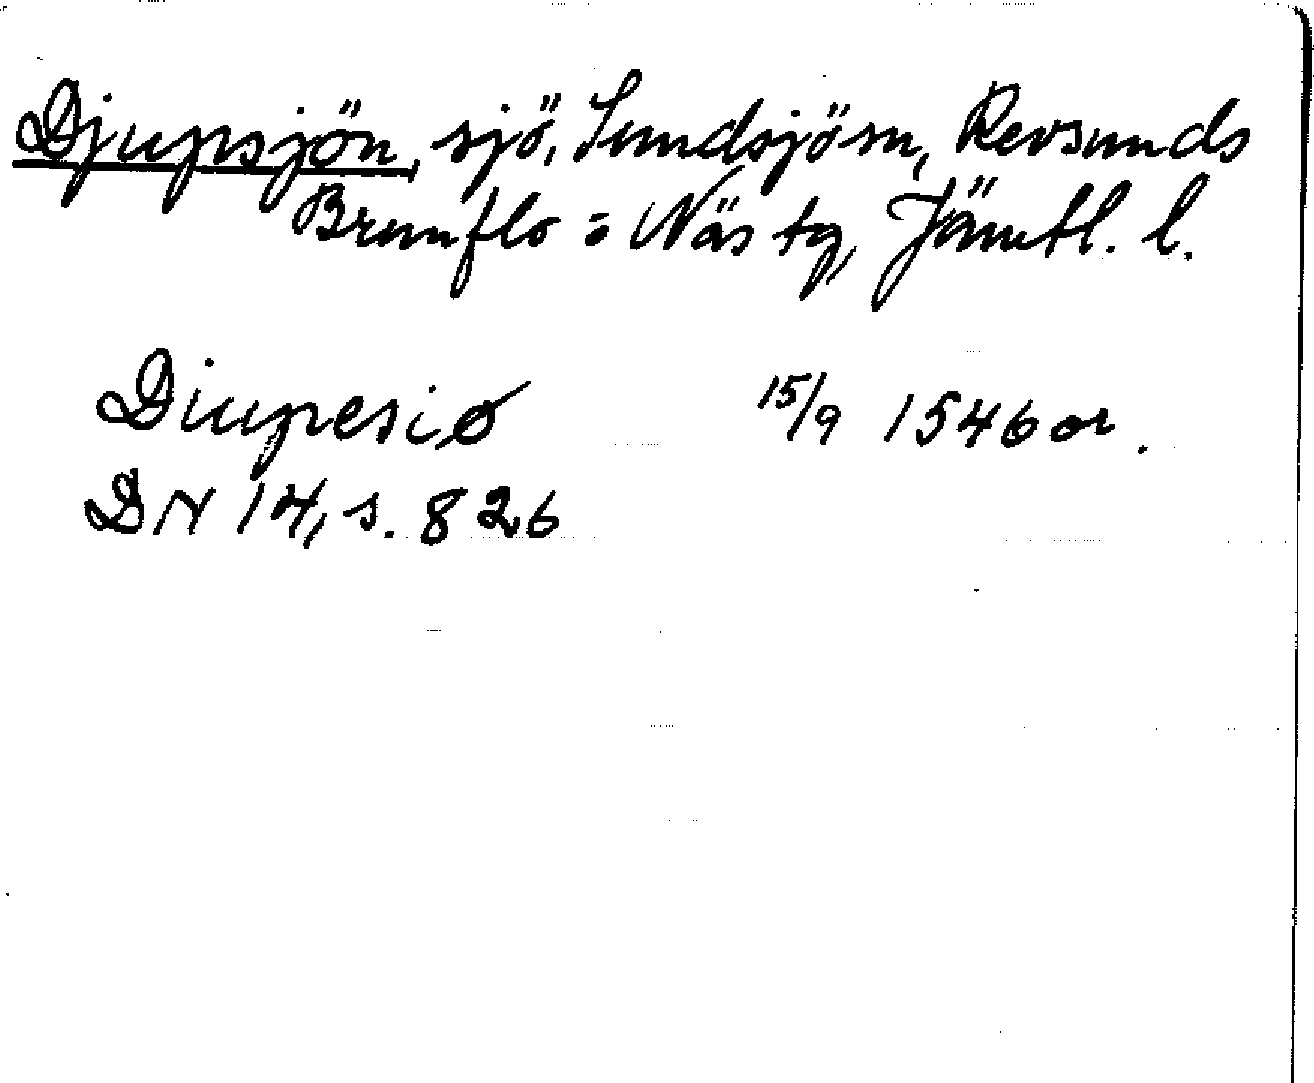 Djupsjön, sjö, Sundsjösn, Revsunds
Brunflo = Näs tg, Jämtl. l.
Diupesiø 15/9 1546 or.
DN 14, s. 826